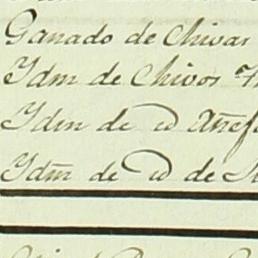 Ganado de Chivar
Ydm de Chivos
Idm de id Añej
Ydm de id de